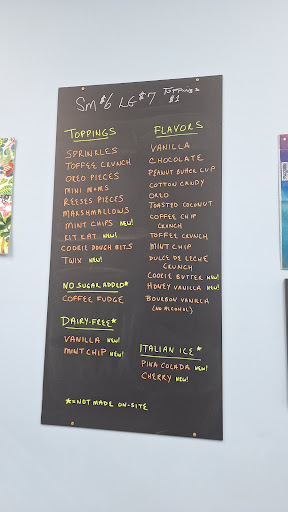 SM $6 LG $7 TOPPINGS $1
TOPPINGS
SPRINKLES
TOFFEE CRUNCH
OREO PIECES
MINI M&MS
REESES PIECES
MARSHMALLOWS
MINT CHIPS NEW!
KIT KAT NEW!
COOKIE DOUGH BITS
TWIX NEW!
NO SUGAR ADDED*
COFFEE FUDGE
DAIRY-FREE*
VANILLA NEW!
MINT CHIP NEW!
FLAVORS
VANILLA
CHOCOLATE
PEANUT BUTTER CUP
COTTON CANDY
OREO
TOASTED COCONUT
COFFEE CHIP
CRUNCH
TOFFEE CRUNCH
MINT CHIP
DULCE DE LECHE
CRUNCH
COOKIE BUTTER NEW!
HONEY VANILLA NEW!
BOURBON VANILLA
(NO ALCOHOL)
ITALIAN ICE*
PINA COLADA NEW!
CHERRY NEW!
*=NOT MADE ON-SITE